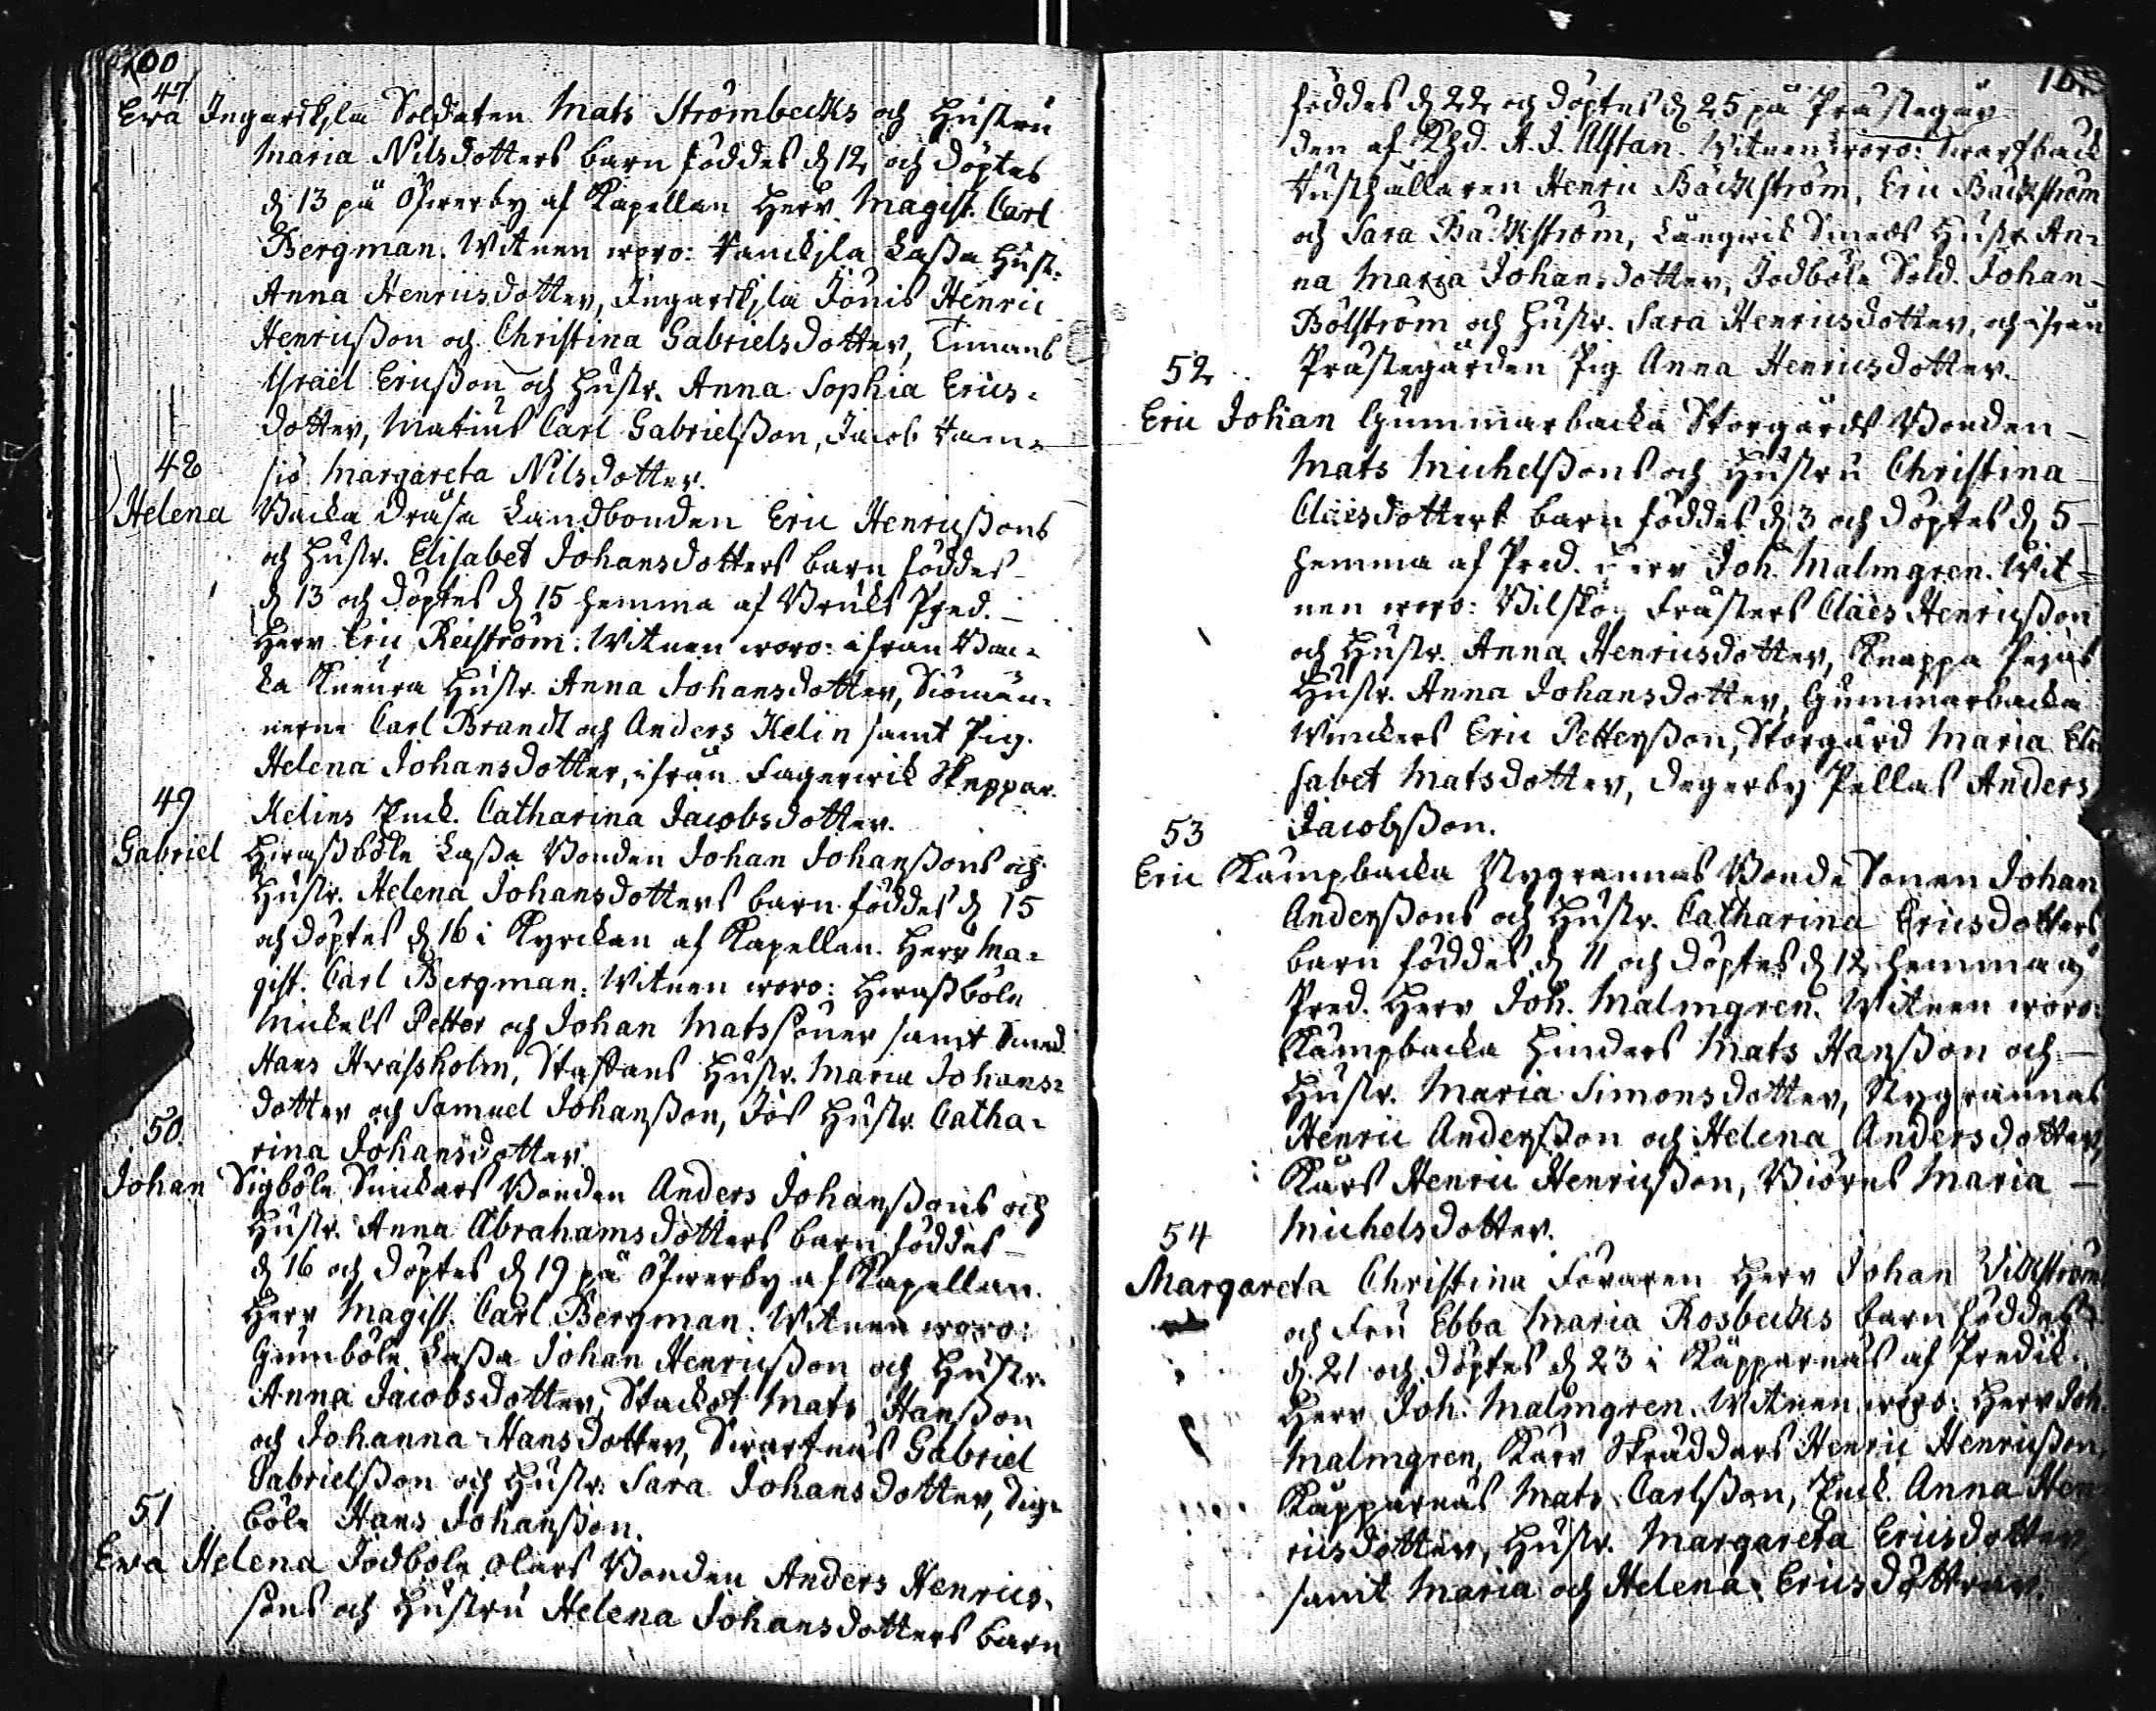 100
47
Ewa Ingarskila Soldaten Mats Strömbecks och Hustru
Maria Nilsdotters barn föddes d 12 och döptes
d 13 på Öfwerby af Kapellan Herr Magist. Carl
Bergman. Witnen woro: Laßa Hust.
Anna Henricsdotter, Ingarskila Jönis Henric
Henricßon och Christina Gabrielsdotter, Timans
Israël Ericßon och Hustr. Anna Sophia Erics-
dotter, Carl Gabrielßon, Jacob
Margareta Nilsdotter.
48
Helena Backa Landbonden Eric Henricßons
och Hustr. Elisabet Johansdotters barn föddes
d 13 och döptes d 15 hemma af Bruks Pred.
Herr Eric Reiström. Witnen woro: ifrån Bac-
ka Hustr. Anna Johansdotter, Siömän-
nerne Carl Brandt och Anders Helin samt Pig.
Helena Johansdotter, ifrån Fagerwik Skeppar
Helins Catharina Jacobsdotter.
49
Gabriel Laßa Bonden Johan Johanßons och
Hustr. Helena Johansdotters barn föddes d 15
och döptes d 16 i Kyrckan af Kapellan Herr Ma-
gist. Carl Bergman. Witnen woro:
Mickels Petter och Johan Matssöner samt Smed
Hans Staffans Hustr. Maria Johans-
dotter och Samuel Johanßon, Jös Hustr. Catha-
rina Johansdotter.
50
Johan Sigböle Bonden Anders Johanßons och
Hustr. Anna Abrahamsdotters barn föddes
d 16 och döptes d 19 på Öfwerby af Kapellan
Herr Magist. Carl Bergman. Witnen woro:
Gunböle Laßa Johan Henricßon och Hustr.
Anna Jacobsdotter, Mats Hanßon
och Johanna Hansdotter, Gabriel
Gabrielßon och Hustr. Sara Johansdotter, Sig-
böle Hans Johanßon.
51
Ewa Helena Jodböle Olars Bonden Anders Henrics-
sons och Hustru Helena Johansdotters barn
föddes d 22 och döptes d 25 på Prästegår-
den af Witnen woro: Swartback
Henric Bäckström, Eric Bäckström
och Sara Bäckström, Långwik Smeds Hustr. An-
na Maria Johansdotter, Jodböle Sold. Johan
Bölström och Hustr. Sara Henricsdotter, och ifrån
Prästegården Pig. Anna Henricsdotter.
52
Eric Johan Gummarbacka Storgårds Bonden
Mats Michelßons och Hustru Christina
Claësdotters barn föddes d 3 och döptes d 5
hemma af Pred. Herr Joh. Malmgren. Wit-
nen woro: Bilskog Claës Henricßon
och Hustr. Anna Henricsdotter, Knappa
Hustr. Anna Johansdotter, Gummarbacka
Eric Petterßon, Storgård Maria Eli-
sabet Matsdotter, Degerby Pellas Anders
Jacobßon.
53
Eric Kämpbacka Nygrannas Bonde Sonen Johan
Anderßons och Hustr. Catharina Ericsdotters
barn föddes d 11 och döptes d 12 hemma af
Pred. Herr Joh. Malmgren. Witnen woro:
Kämpbacka Hinders Mats Hanßon och
Hustr. Maria Simonsdotter, Nygrannas
Henric Anderßon och Helena Andersdotter,
Kärs Henric Henricßon, Biörns Maria
Michelsdotter.
54
Margareta Christina Föraren Herr Johan Wikström
och Fru Ebba Maria Rosbecks barn föddes
d 21 och döptes d 23 i Kopparnäs af Predik.
Herr Joh. Malmgren. Witnen woro: Herr Joh.
Malmgren, Kärr Skräddars Henric Henricßon,
Kopparnäs Mats Carlßon, Anna Hen-
ricsdotter, Hustr. Margareta Ericsdotter
samt Maria och Helena Ericsdöttrar.